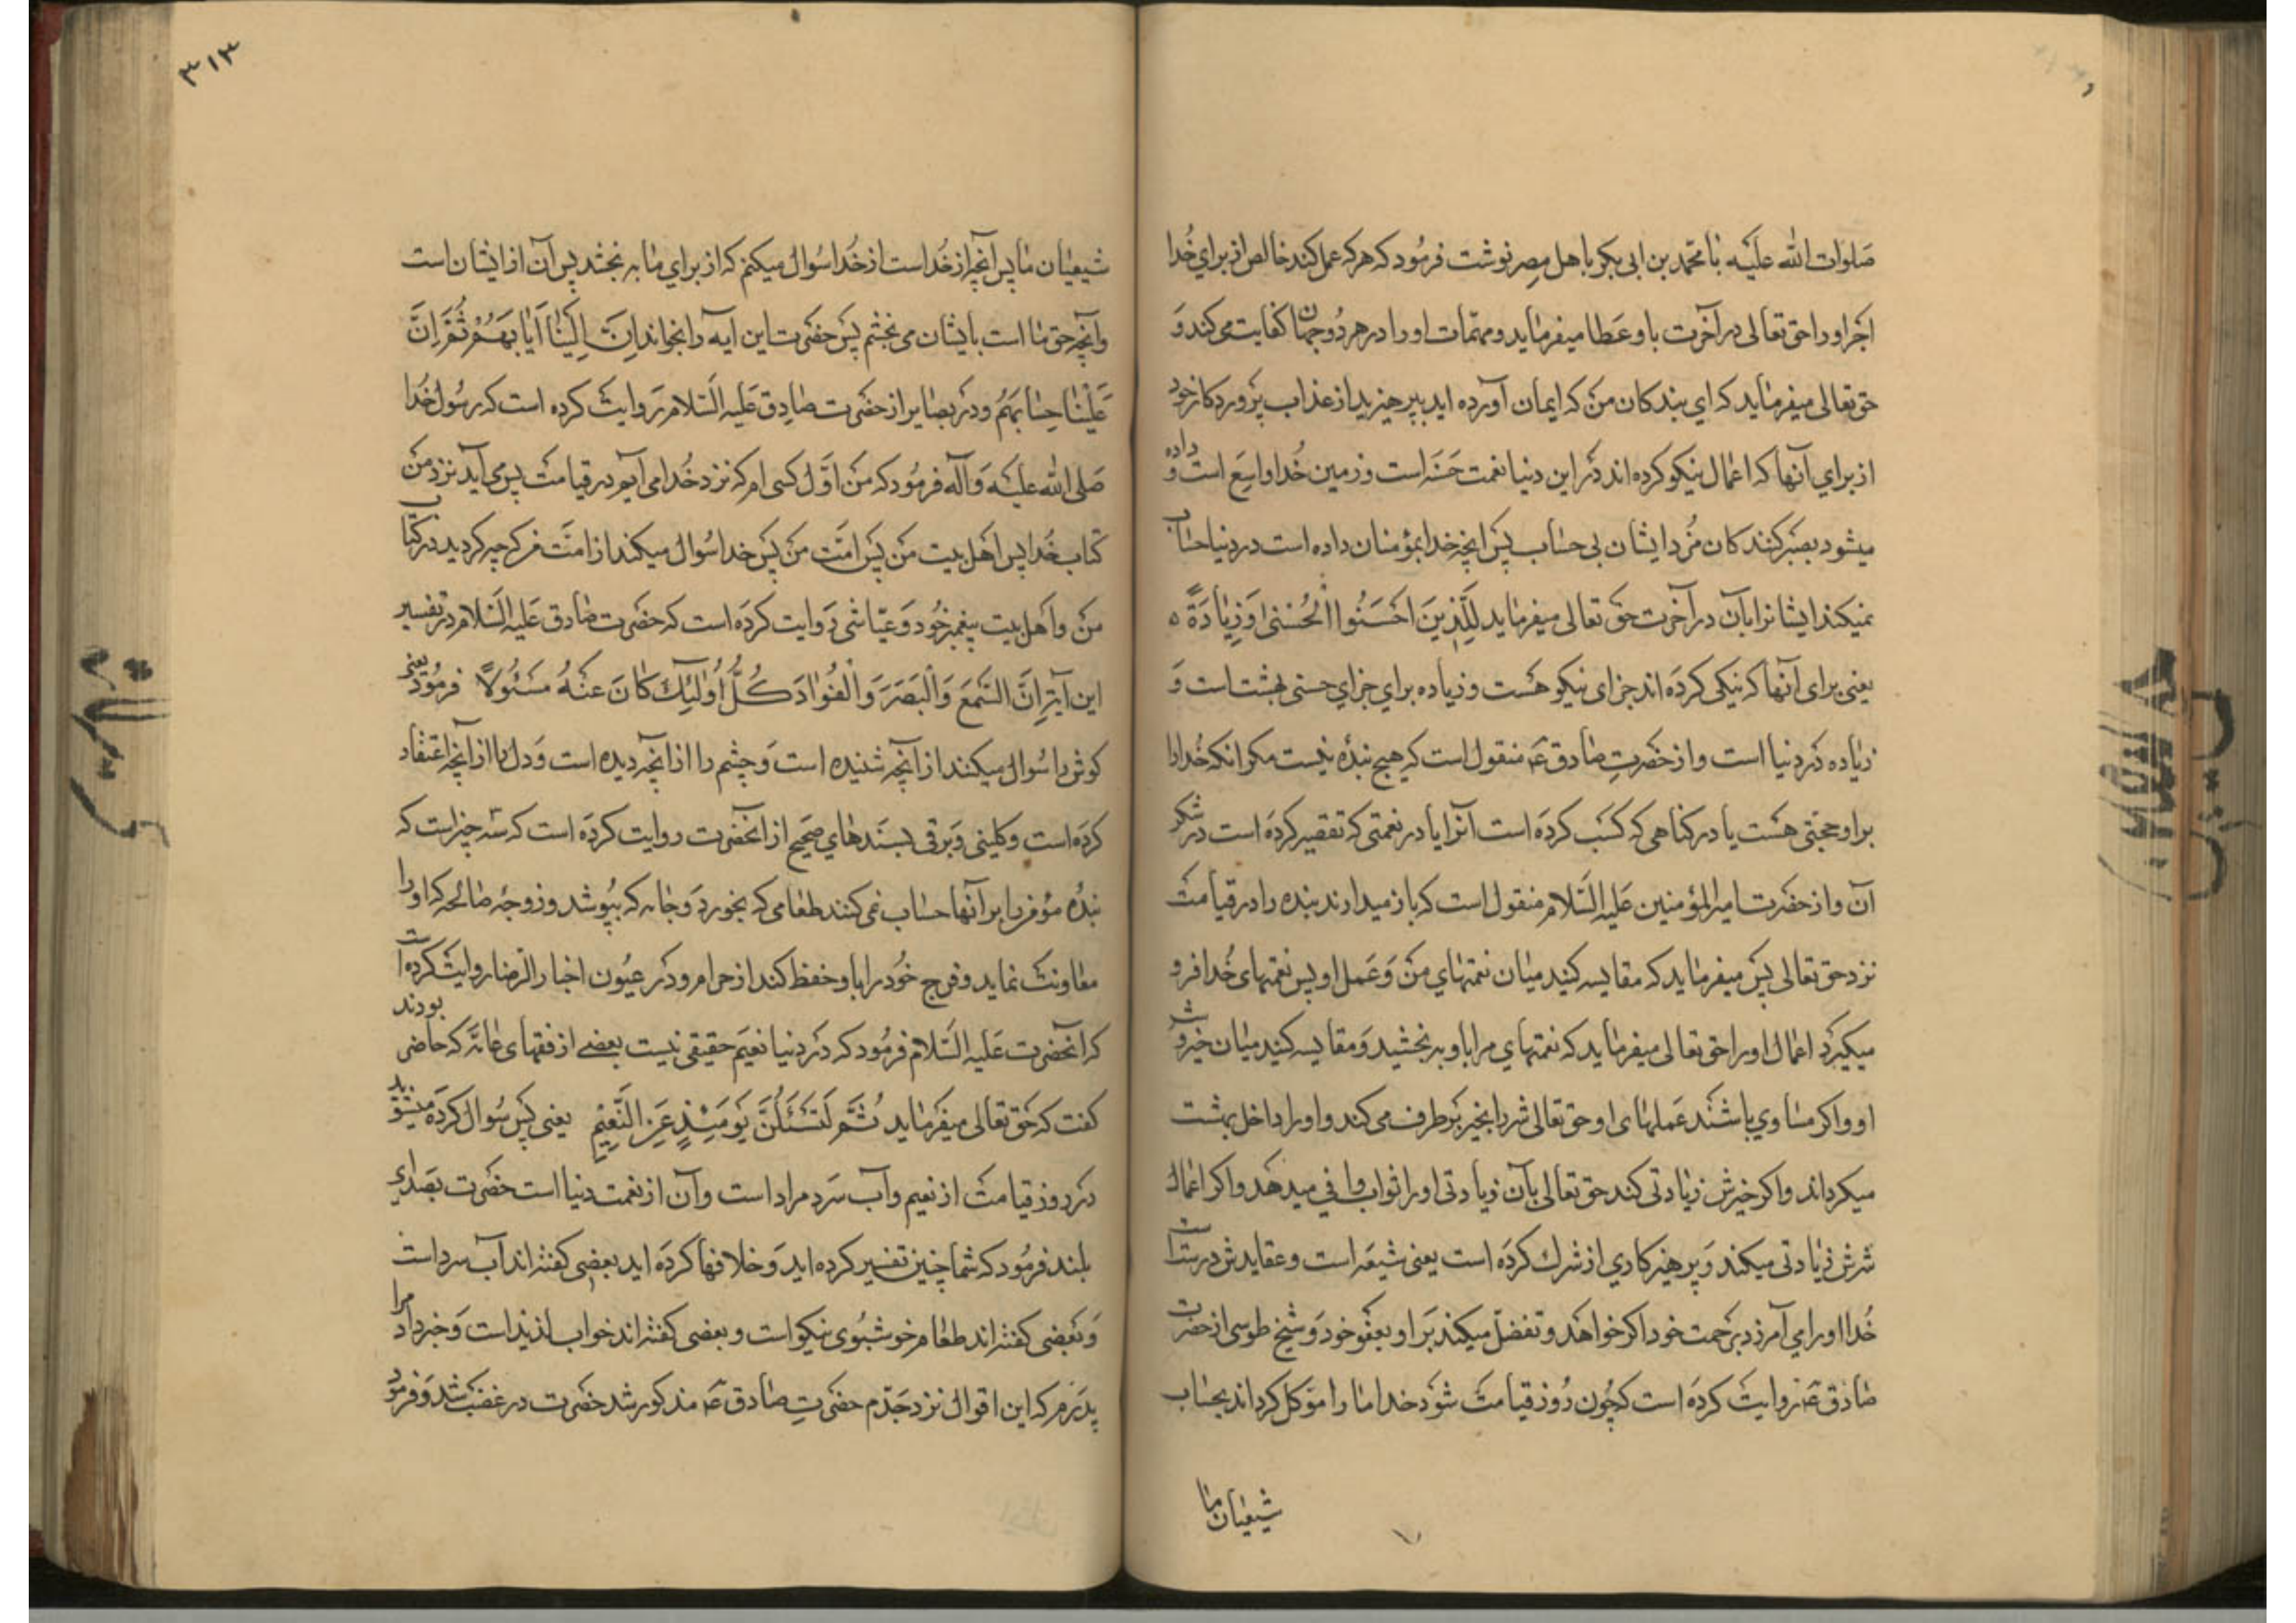 صلوات الله علیه با محمد بن ابی بکر باهل مصر نوشت فرمود که هر که عمل کند خالص از برای خدا
اجر او را حق تعالی در آخرت باو عطا میفرماید و مهمات او را در هر دو جهان کفایت می کند و
حق تعالی میفرماید که ای بندکان من که ایمان آورده اید بپرهیزید از عذاب پروردکار خود
از برای آنها که اعمال نیکو کرده اند در این دنیا نعمت حسنه است و زمین خدا واسع است و داده
میشود بصبر کنندکان مزد ایشان بی حساب پس انچه خدا بمؤمنان داده است در دنیا حساب
نمیکند ایشانرا بآن در آخرت حق تعالی میفرماید لِلَّذِینَ اَحْسَنُوا الْحُسْنٰی وَزِیٰادَةٌ ه
یعنی برای آنها که نیکی کرده اند جزای نیکو هست و زیاده برای جزای حسنی بهشت است و
زیاده در دنیا است و از حضرت صادق ع منقول است که هیچ بندهٔ نیست مکر انکه خدا را
بر او حجتی هست یا در کناهی که کسب کرده است آنرا یا در نعمتی که تقصیر کرده است در شکر
آن و از حضرت امیر المؤمنین علیه السلام منقول است که باز میدارند بنده را در قیامت
نزد حق تعالی پس میفرماید که مقایسه کنید میان نعمتهای من و عمل او پس نعمتهای خدا فرو
میکیرد اعمال او را حق تعالی میفرماید که نعمتهای مرا باو ببخشید و مقایسه کنید میان خیر و شر
او و اکر مساوی باشند عملهای او حق تعالی شر را بخیر برطرف می کند و او را داخل بهشت
میکرداند و اکر خیرش زیادتی کند حق تعالی بآن زیادتی او را ثواب وافی میدهد و اکر اعمال
شرش زیادتی میکند و پرهیزکاری از شرک کرده است یعنی شیعه است و عقایدش درست است
خدا او را می آمرزد برحمت خود اکر خواهد و تفضل میکند بر او بعفو خود و شیخ طوسی از حضرت
صادق ع روایت کرده است که چون روز قیامت شود خدا ما را موکل کرداند بحساب
شیعیان ما
۳۱۳
شیعیان ما پس آنچه از خداست از خدا سوال میکنم که از برای ما به بخشد پس آن از ایشان است
و آنچه حق ما است بایشان می بخشم پس حضرت این ایه را بخواند اِنَّ اِلَیْنٰا اَیٰابَهُمْ ثُمَّ اِنَّ
عَلَیْنٰا حِسٰابَهُمْ و در بصایر از حضرت صادق علیه السلام روایت کرده است که رسول خدا
صلی الله علیه و آله فرمود که من اول کسی ام که نزد خدا می آیم در قیامت پس می آید نزد من
کتاب خدا پس اهل بیت من پس امت من پس خدا سوال میکند از امت من که چه کردید در کتاب
من و اهل بیت پیغمبر خود و عیاشی روایت کرده است که حضرت صادق علیه السلام در تفسیر
این آیه اِنَّ السَّمْعَ وَالْبَصَرَ وَالْفُوٰادَ کُلُّ اُولٰئِکَ کانَ عَنْهُ مَسْئُولاً فرمود یعنی
کوش را سوال میکنند از آنچه شنیده است و چشم را از آنچه دیده است و دل را از آنچه اعتقاد
کرده است و کلینی و برقی بسندهای صحیح از انحضرت روایت کرده است که سه چیز است که
بندهٔ مؤمن را بر آنها حساب نمی کنند طعامی که بخورد و جامه که بپوشد و زوجهٔ صالحه که او را
معاونت نماید و فرج خود را باو حفظ کند از حرام و در عیون اخبار الرضا روایت کرده است
که آنحضرت علیه السلام فرمود که در دنیا نعیم حقیقی نیست بعضے از فقهای عامه که حاضر بودند
کفت که حق تعالی میفرماید ثُمَّ لَتُسْئَلُنَّ یَوْمَئِذٍ عَنِ النَّعِیْمِ یعنی پس سوال کرده میشوید
در روز قیامت از نعیم و آب سرد مراد است و آن از نعمت دنیا است حضرت بصدای
بلند فرمود که شما چنین تفسیر کرده اید و خلافها کرده اید بعضی کفته اند آب سرد است
و بعضی کفته اند طعام خوشبوی نیکو است و بعضی کفته اند خواب لذیذ است و خبر داد مرا
پدرم که این اقوال نزد جدم حضرت صادق ع مذکور شد حضرت در غضب شد و فرمود